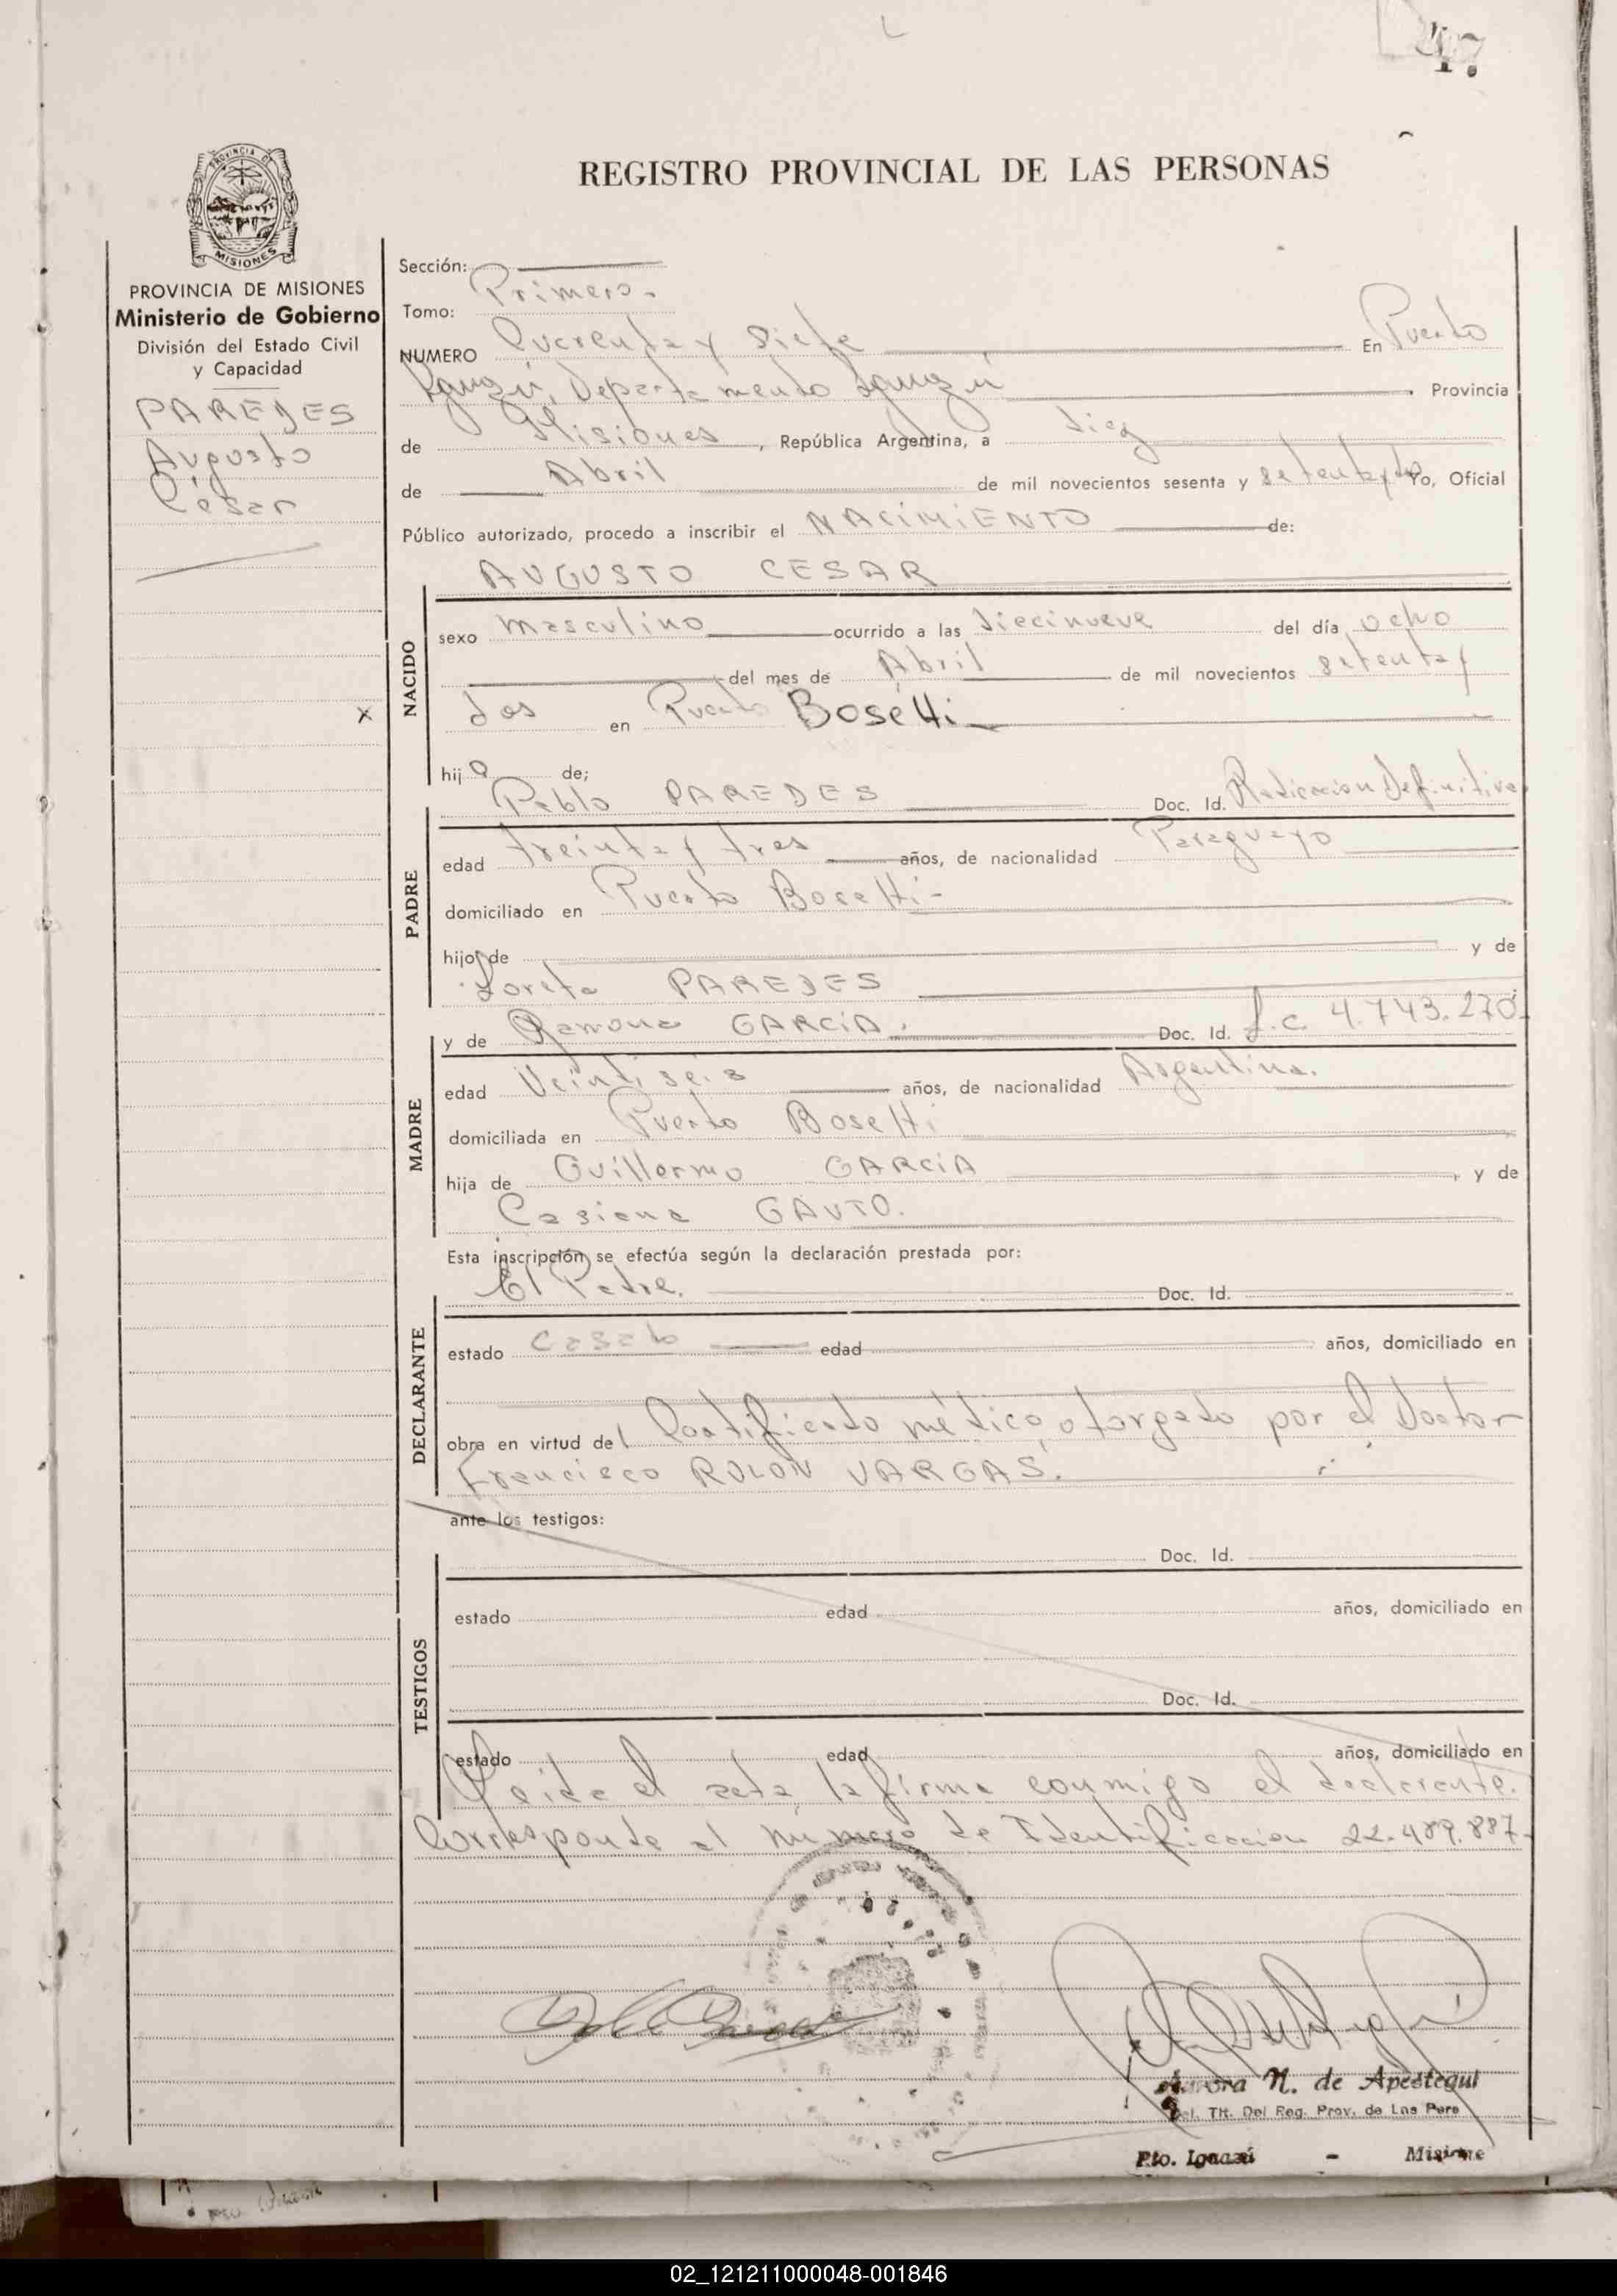 47
REGISTRO PROVINCIAL DE LAS PERSONAS
PROVINCIA DE MISIONES
PROVINCIA DE MISIONES
Ministerio de Gobierno
División del Estado Civil
y Capacidad
PAREDES
Augusto
César
Sección:
Tomo: Primero.
NUMERO Cuarenta y Siete En Puerto
Iguazú, Departamento Iguazú Provincia
de Misiones, República Argentina, a diez
de Abril de mil novecientos sesenta y setenta y dos Yo, Oficial
Público autorizado, procedo a inscribir el NACIMIENTO de:
AUGUSTO CESAR
NACIDO
sexo masculino ocurrido a las diecinueve del día ocho
del mes de Abril de mil novecientos setenta y
x
dos en Puerto Bosetti
hijo de;
PADRE
Pablo PAREDES Doc. Id. Radicacion Definitiva
edad treinta y tres años, de nacionalidad Paraguayo
domiciliado en Puerto Bosetti-
hijo de y de
Loreta PAREDES
MADRE
y de Ramona GARCIA. Doc. Id. L.C. 4.743.270.
edad Veintiseis años, de nacionalidad Argentina.
domiciliada en Puerto Bosetti
hija de Guillermo GARCIA, y de
Casiana GAUTO.
Esta inscripción se efectúa según la declaración prestada por:
DECLARANTE
El Padre. Doc. Id.
estado casado edad años, domiciliado en
obra en virtud del Certificado médico, otorgado por el Doctor
Francisco ROLON VARGAS.
ante los testigos:
TESTIGOS
Doc. Id.
estado edad años, domiciliado en
Doc. Id.
estado edad años, domiciliado en
Leida el acta, la firma conmigo el declarante.
Corresponde al número de Identificacion 22.489.887-
Aurora N. de Apestegui
Del. Tit. Del Reg. Prov. de Las Pers
Pto. Iguazú - Misione
02_121211000048-001846